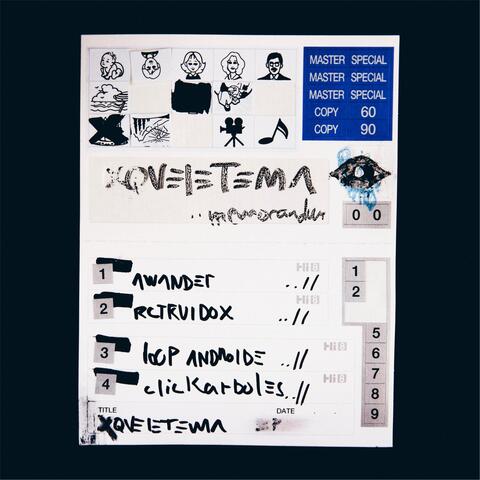 MASTER SPECIAL
MASTER SPECIAL
MASTER SPECIAL
COPY 60
COPY 90
XQVELETEMA
..memorandum
0 0
1 AWANDET ..// Hi8
2 RCTRVIDOX ..//
3 LOOP ANDROIDE ..// Hi8
4 clickarboles..// Hi8
1
2
5
6
7
8
9
TITLE DATE
XQVELETEMA EP